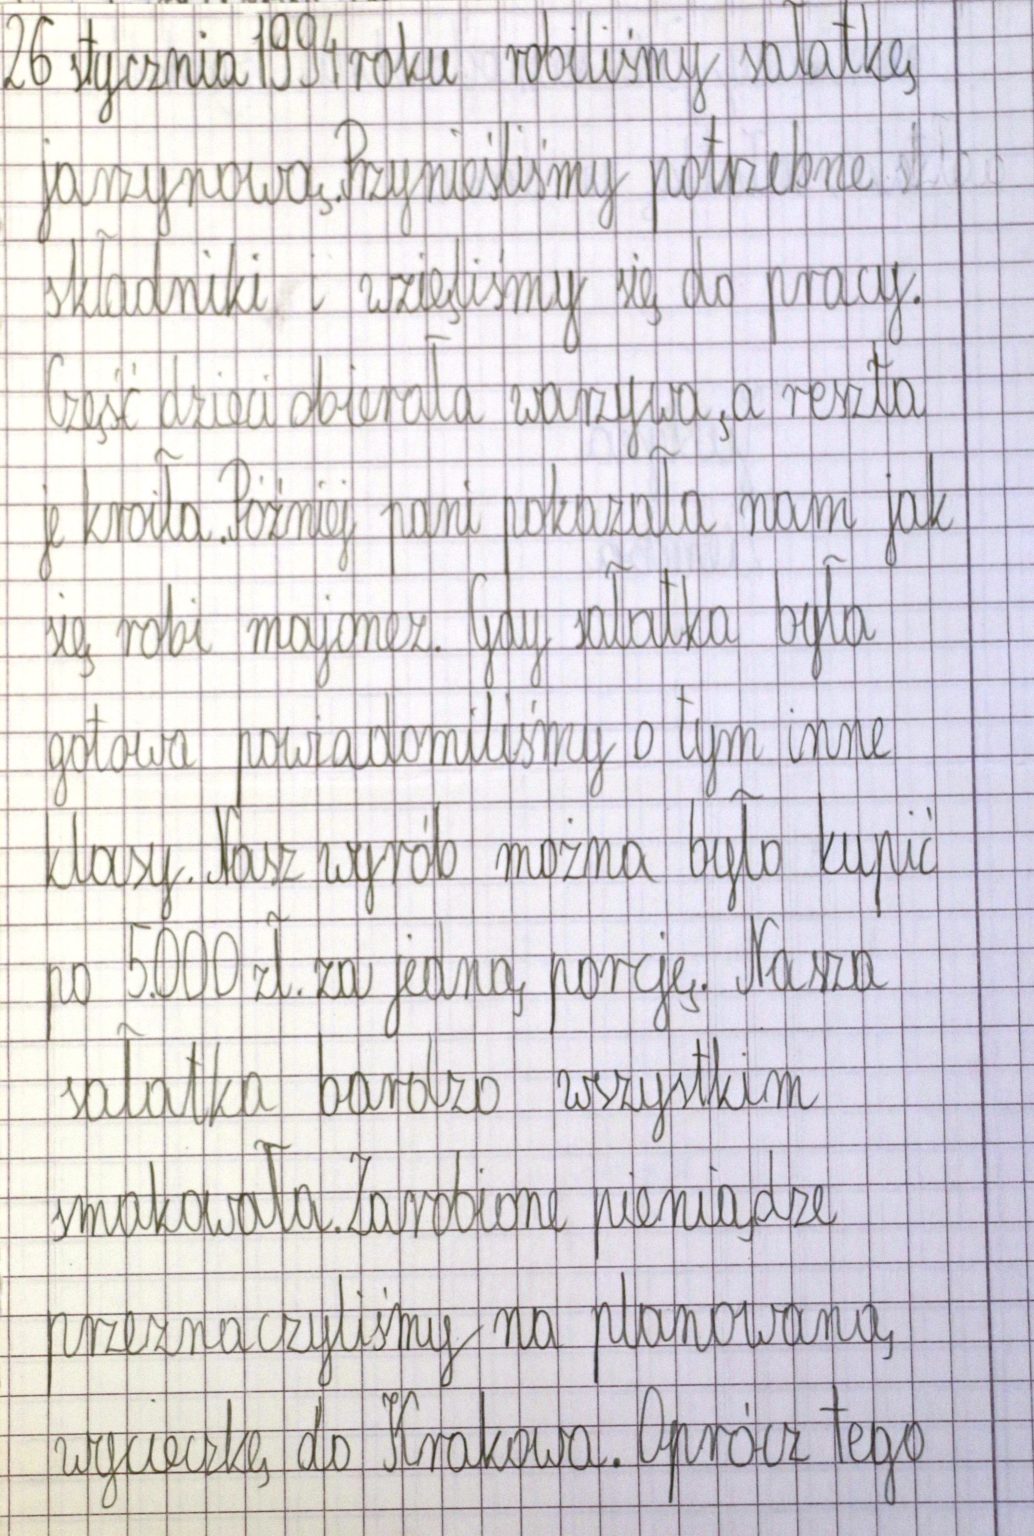 26 stycznia 1994 roku robiliśmy sałatkę
jarzynową. Przynieśliśmy potrzebne
składniki i wzięliśmy się do pracy.
Część dzieci obierała warzywa, a reszta
je kroiła. Później pani pokazała nam jak
się robi majonez. Gdy sałatka była
gotowa powiadomiliśmy o tym inne
klasy. Nasz wyrób można było kupić
po 5.000 zł. za jedną porcję. Nasza
sałatka bardzo wszystkim
smakowała. Zarobione pieniądze
przeznaczyliśmy na planowaną
wycieczkę do Krakowa. Oprócz tego